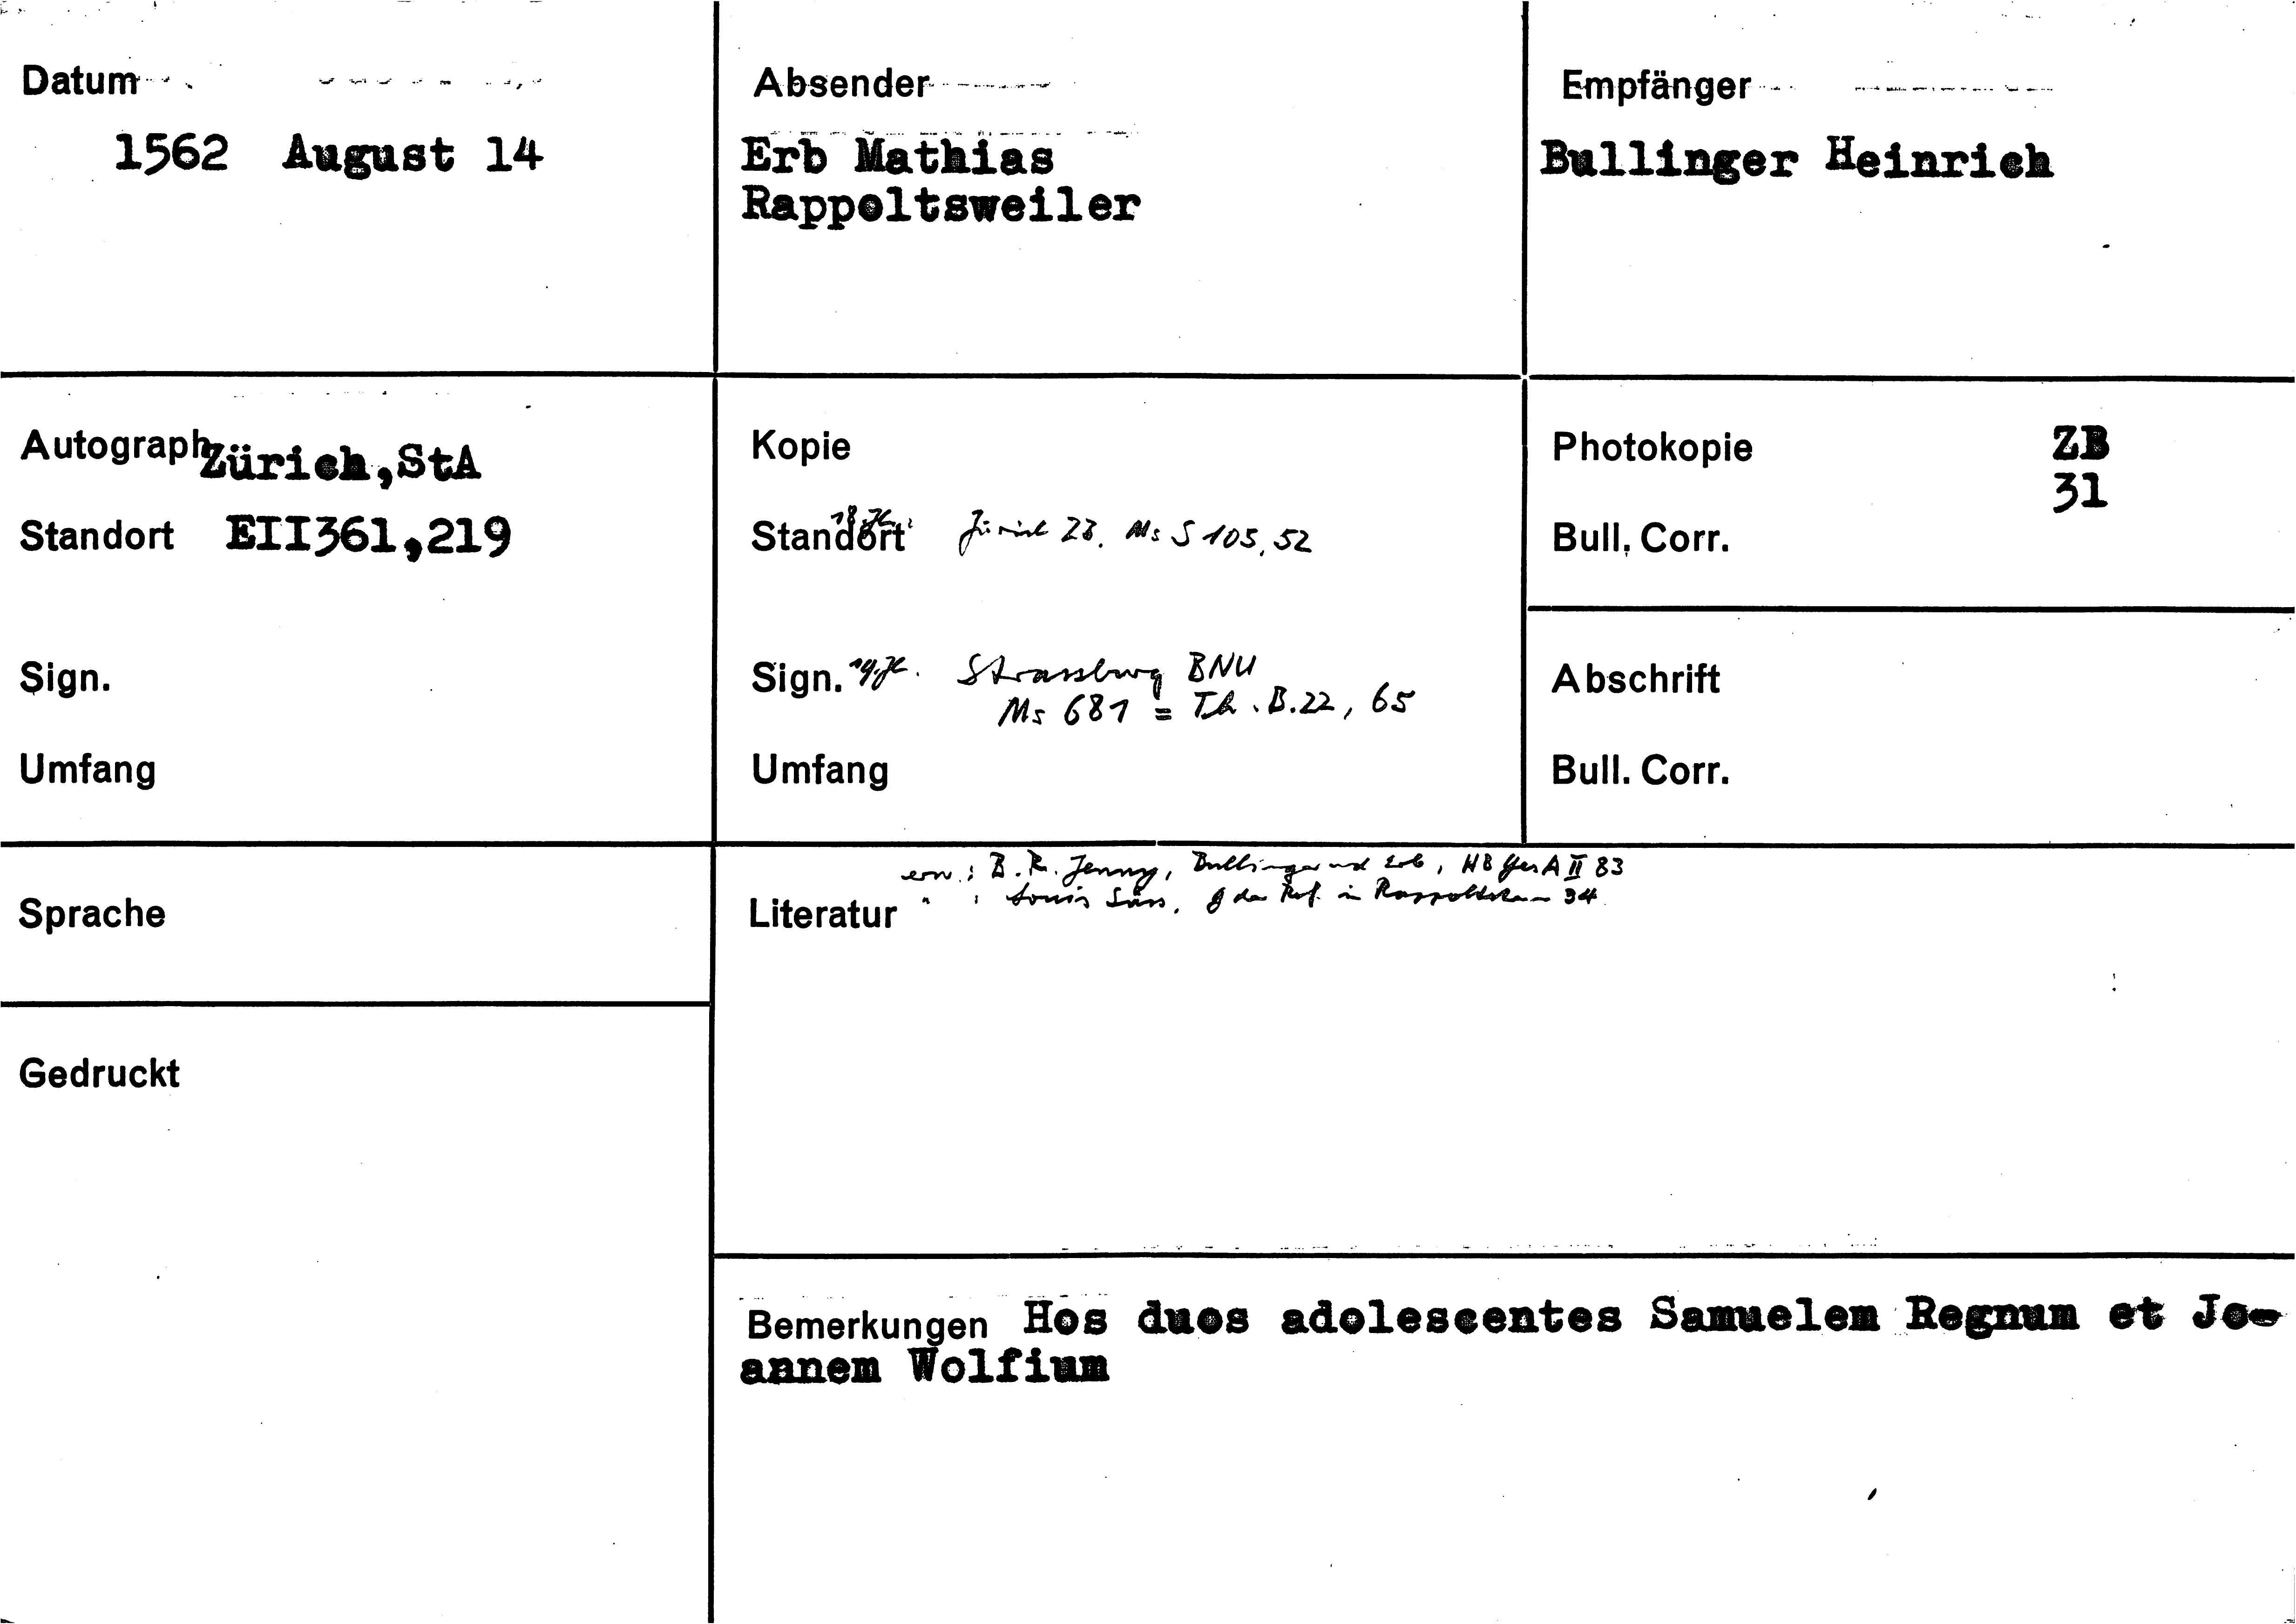 Datum
1562 August 14
Absender
Erb Mathias
Rappoltsweiler
Empfänger
Bullinger Heinrich
Autograph Zürich,StA
Standort EII361,219
Sign.
Umfang
Kopie
Standort 18.Jh. Zürich ZB. Ms S 105, 52
Sign. 19.Jh. Strassburg BNU
Ms 681 = Th. B.22, 65
Umfang
Photokopie ZB
31
Bull. Corr.
Abschrift
Bull. Corr.
Sprache
Gedruckt
erw.: B. R. Jenny, Bullinger und Erb, HB Ges A II 83
Literatur " : Louis Süss, G der Ref. in 34
Bemerkungen Hos duos adolescentes Samuelem Regnum et Jo-
annem Wolfium